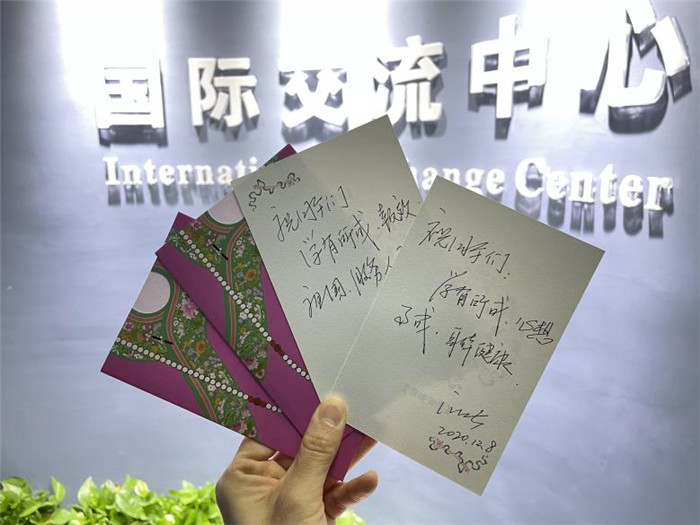 国际交流中心
Internation hange Center
祝同学们
学有所成,报效
祖国,服务
祝同学们:
学有所成,心想
事成,健康.
2020.12.8